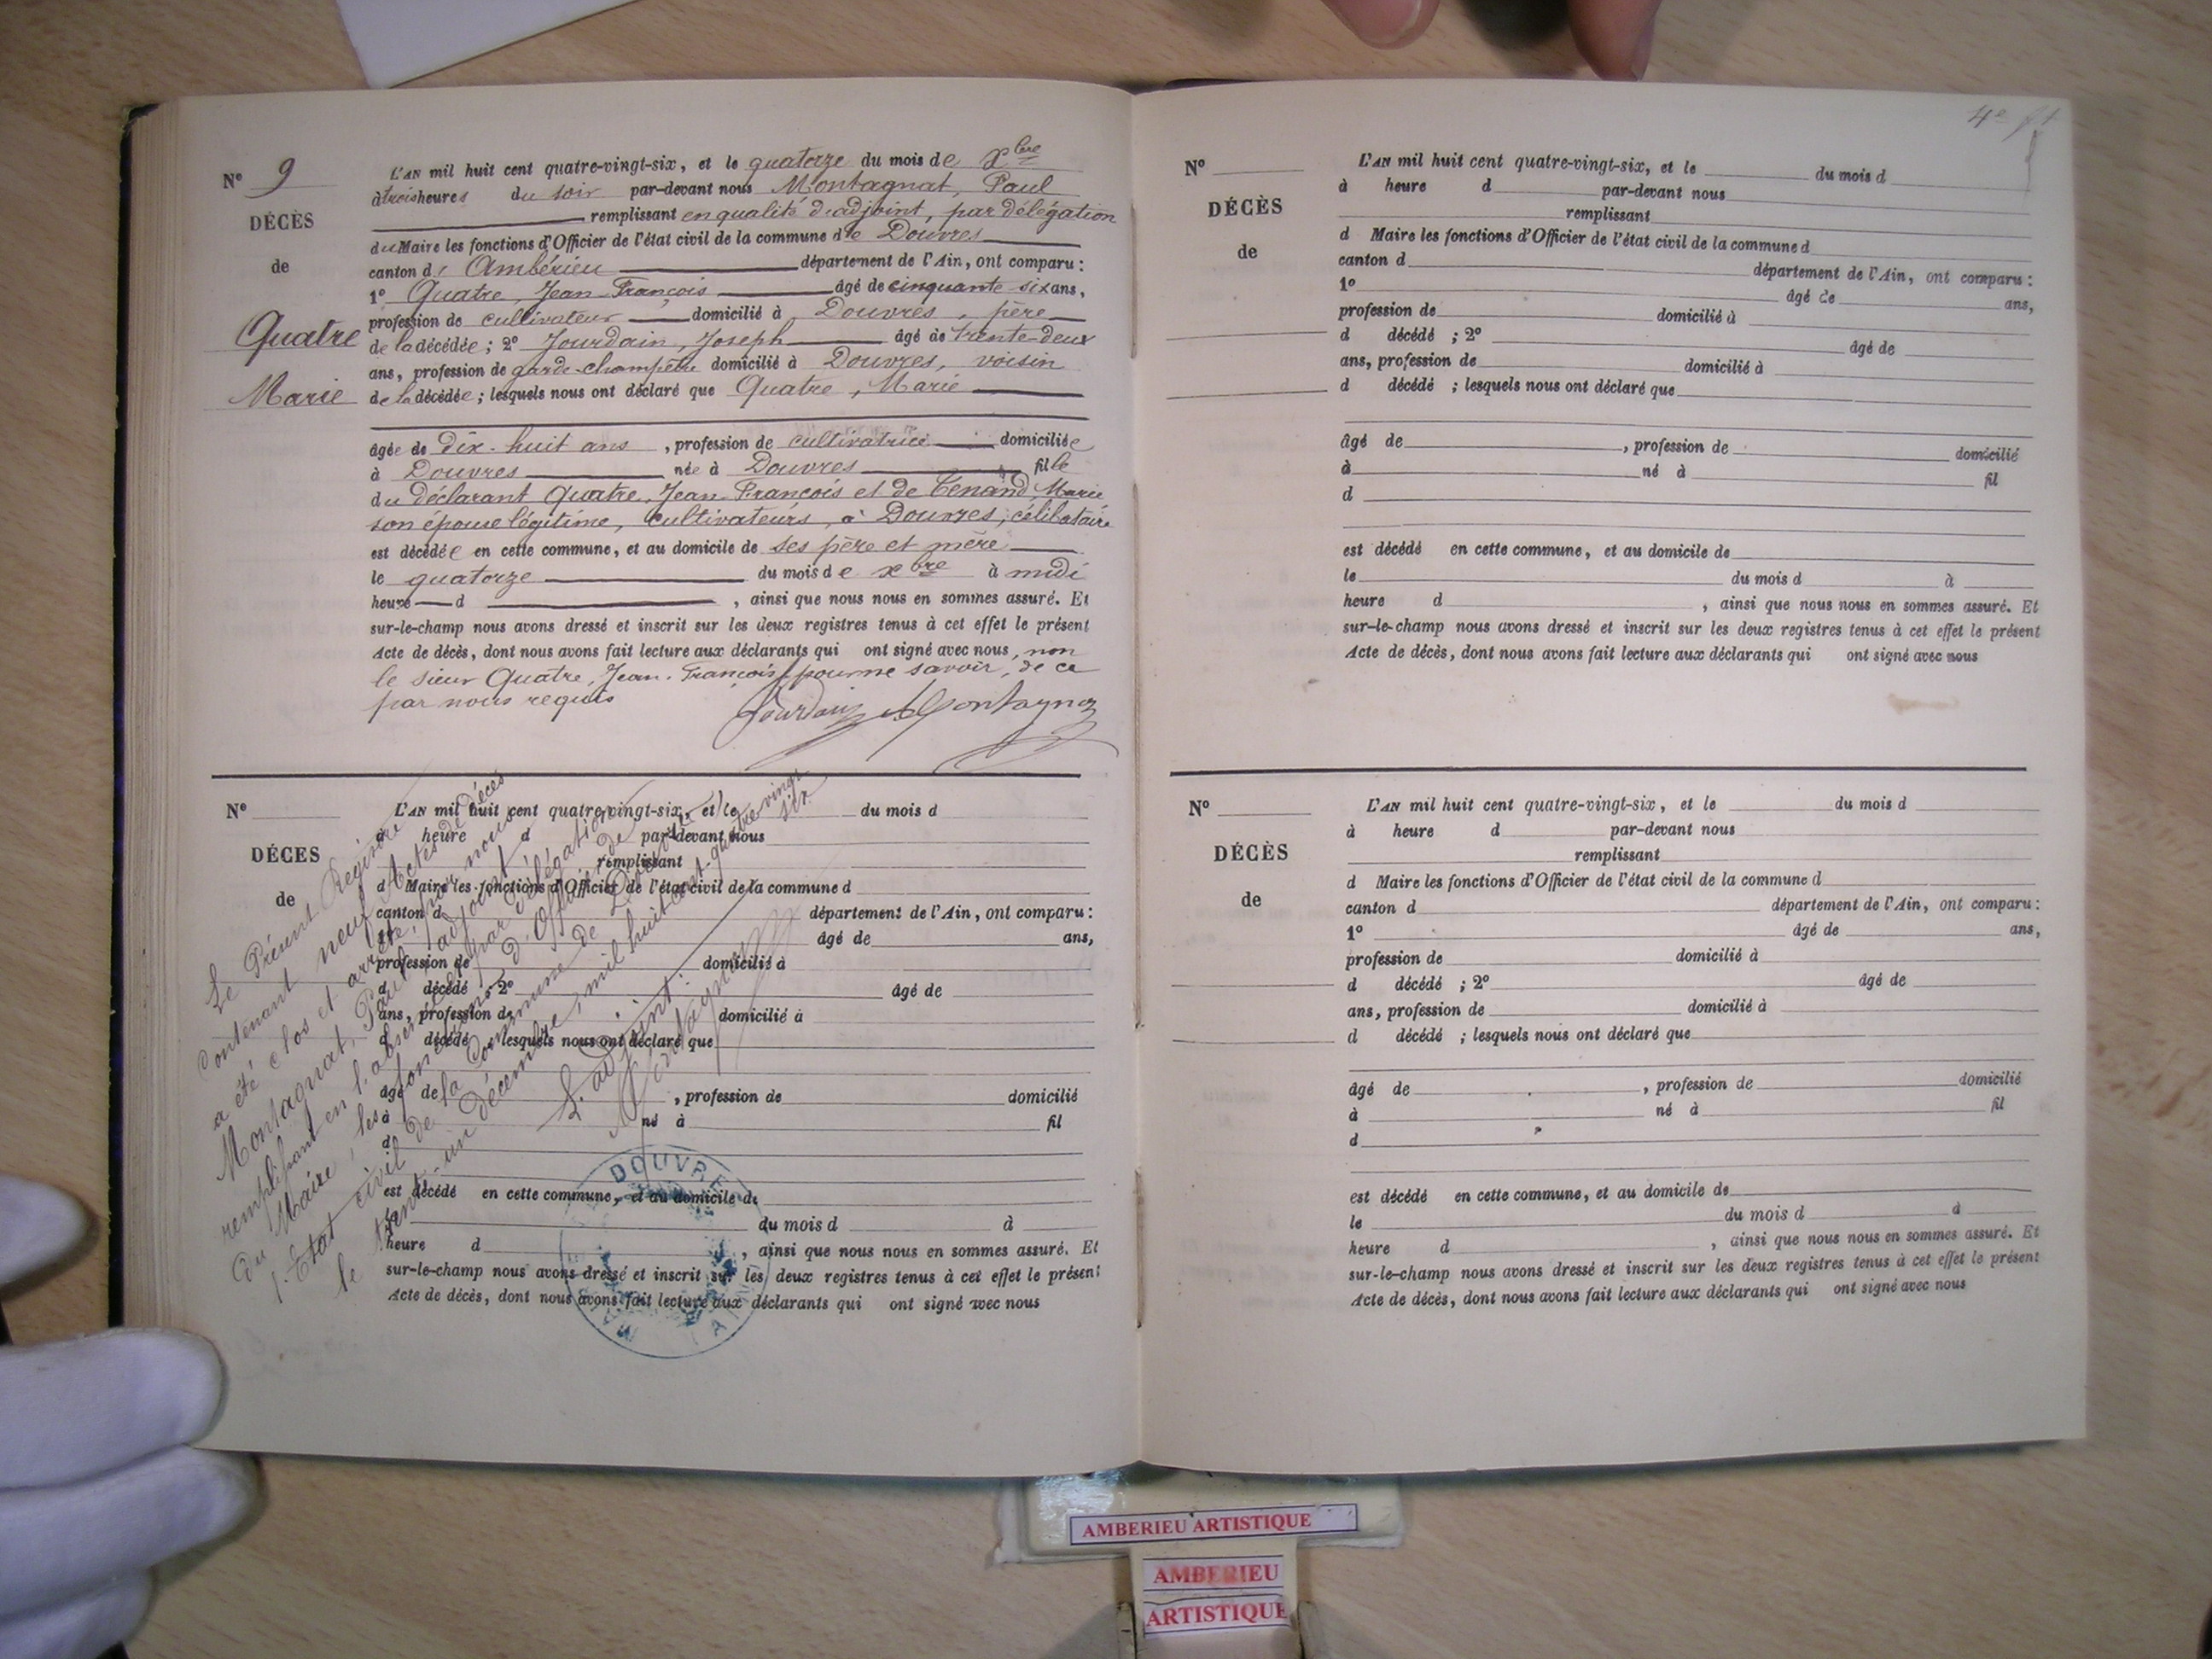 N° 9
DÉCÈS
de
Quatre
Marie
L'AN mil huit cent quatre-vingt-six, et le quatorze du mois de Xbre
à trois heures du soir par-devant nous Montagnat, Paul
remplissant en qualité d'adjoint, par délégation
du Maire les fonctions d'Officier de l'état civil de la commune de Douvres
canton d' Ambérieu département de l'Ain, ont comparu :
1° Quatre, Jean-François âgé de cinquante-six ans,
profession de cultivateur domicilié à Douvres, père
de la décédée ; 2° Jourdain, Joseph âgé de trente-deux
ans, profession de garde-champêtre domicilié à Douvres, voisin
de la décédée ; lesquels nous ont déclaré que Quatre, Marie
âgée de dix-huit ans, profession de cultivatrice domiciliée
à Douvres née à Douvres fille
du déclarant Quatre, Jean-François et de Tenand, Marie
son épouse légitime, cultivateurs, à Douvres, célibataire
est décédée en cette commune, et au domicile de ses père et mère
le quatorze du mois de xbre à midi
heure d , ainsi que nous nous en sommes assuré. Et
sur-le-champ nous avons dressé et inscrit sur les deux registres tenus à cet effet le présent
Acte de décès, dont nous avons fait lecture aux déclarants qui ont signé avec nous, non
le sieur Quatre, Jean-François, pour ne savoir, de ce
par nous requis
Jourdain Montagnat
N°
DÉCES
de
L'AN mil huit cent quatre-vingt-six, et le du mois d
à heure d par-devant nous
remplissant
d Maire les fonctions d'Officier de l'état civil de la commune d
canton d département de l'Ain, ont comparu :
1° âgé de ans,
profession de domicilié à
d décédé ; 2° âgé de
ans, profession de domicilié à
d décédé ; lesquels nous ont déclaré que
âgé de , profession de domicilié
à né à fil
d
est décédé en cette commune, et au domicile de
le du mois d à
heure d , ainsi que nous nous en sommes assuré. Et
sur-le-champ nous avons dressé et inscrit sur les deux registres tenus à cet effet le présent
Acte de décès, dont nous avons fait lecture aux déclarants qui ont signé avec nous
Le Présent Registre
contenant neuf Actes de décès
a été clos et arrêté, par nous
Montagnat, Paul, adjoint
remplissant en l'absence et par délégation
du Maire, les fonctions d'Officier de
l'Etat civil de la Commune de Douvres
le trente-un décembre, mil huit cent quatre-vingt
six.
L'adjoint :
Montagnat
DOUVRES
AIN
4e ft
N°
DÉCÈS
de
L'AN mil huit cent quatre-vingt-six, et le du mois d
à heure d par-devant nous
remplissant
d Maire les fonctions d'Officier de l'état civil de la commune d
canton d département de l'Ain, ont comparu :
1° âgé de ans,
profession de domicilié à
d décédé ; 2° âgé de
ans, profession de domicilié à
d décédé ; lesquels nous ont déclaré que
âgé de , profession de domicilié
à né à fil
d
est décédé en cette commune, et au domicile de
le du mois d à
heure d , ainsi que nous nous en sommes assuré. Et
sur-le-champ nous avons dressé et inscrit sur les deux registres tenus à cet effet le présent
Acte de décès, dont nous avons fait lecture aux déclarants qui ont signé avec nous
N°
DÉCÈS
de
L'AN mil huit cent quatre-vingt-six, et le du mois d
à heure d par-devant nous
remplissant
d Maire les fonctions d'Officier de l'état civil de la commune d
canton d département de l'Ain, ont comparu :
1° âgé de ans,
profession de domicilié à
d décédé ; 2° âgé de
ans, profession de domicilié à
d décédé ; lesquels nous ont déclaré que
âgé de , profession de domicilié
à né à fil
d
est décédé en cette commune, et au domicile de
le du mois d à
heure d , ainsi que nous nous en sommes assuré. Et
sur-le-champ nous avons dressé et inscrit sur les deux registres tenus à cet effet le présent
Acte de décès, dont nous avons fait lecture aux déclarants qui ont signé avec nous
AMBERIEU ARTISTIQUE
AMBERIEU
ARTISTIQUE